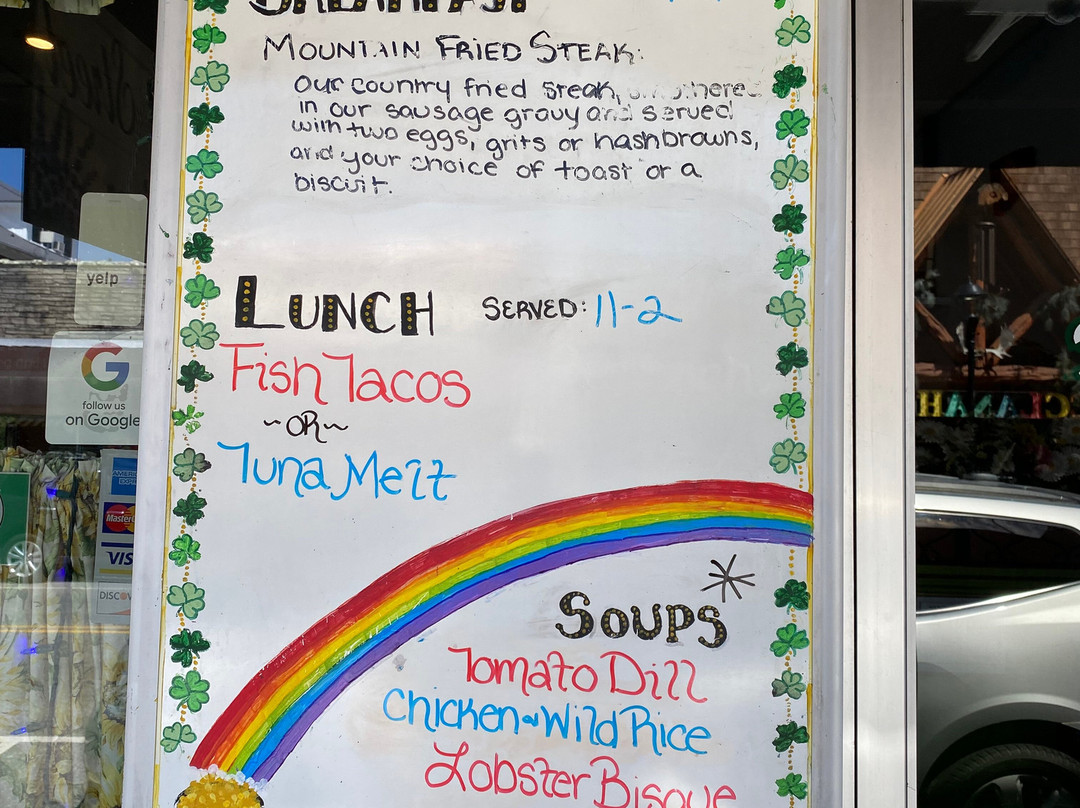 BREAKFAST
MOUNTAIN FRIED STEAK:
Our country fried steak, smothered
in our sausage gravy and served
with two eggs, grits or hashbrowns,
and your choice of toast or a
biscuit.
LUNCH SERVED: 11-2
Fish Tacos
~OR~
Tuna Melt
SOUPS
Tomato Dill
Chicken & Wild Rice
Lobster Bisque
yelp
G
follow us
on Google
AMERICAN
EXPRESS
MasterC
VISA
DISCOV